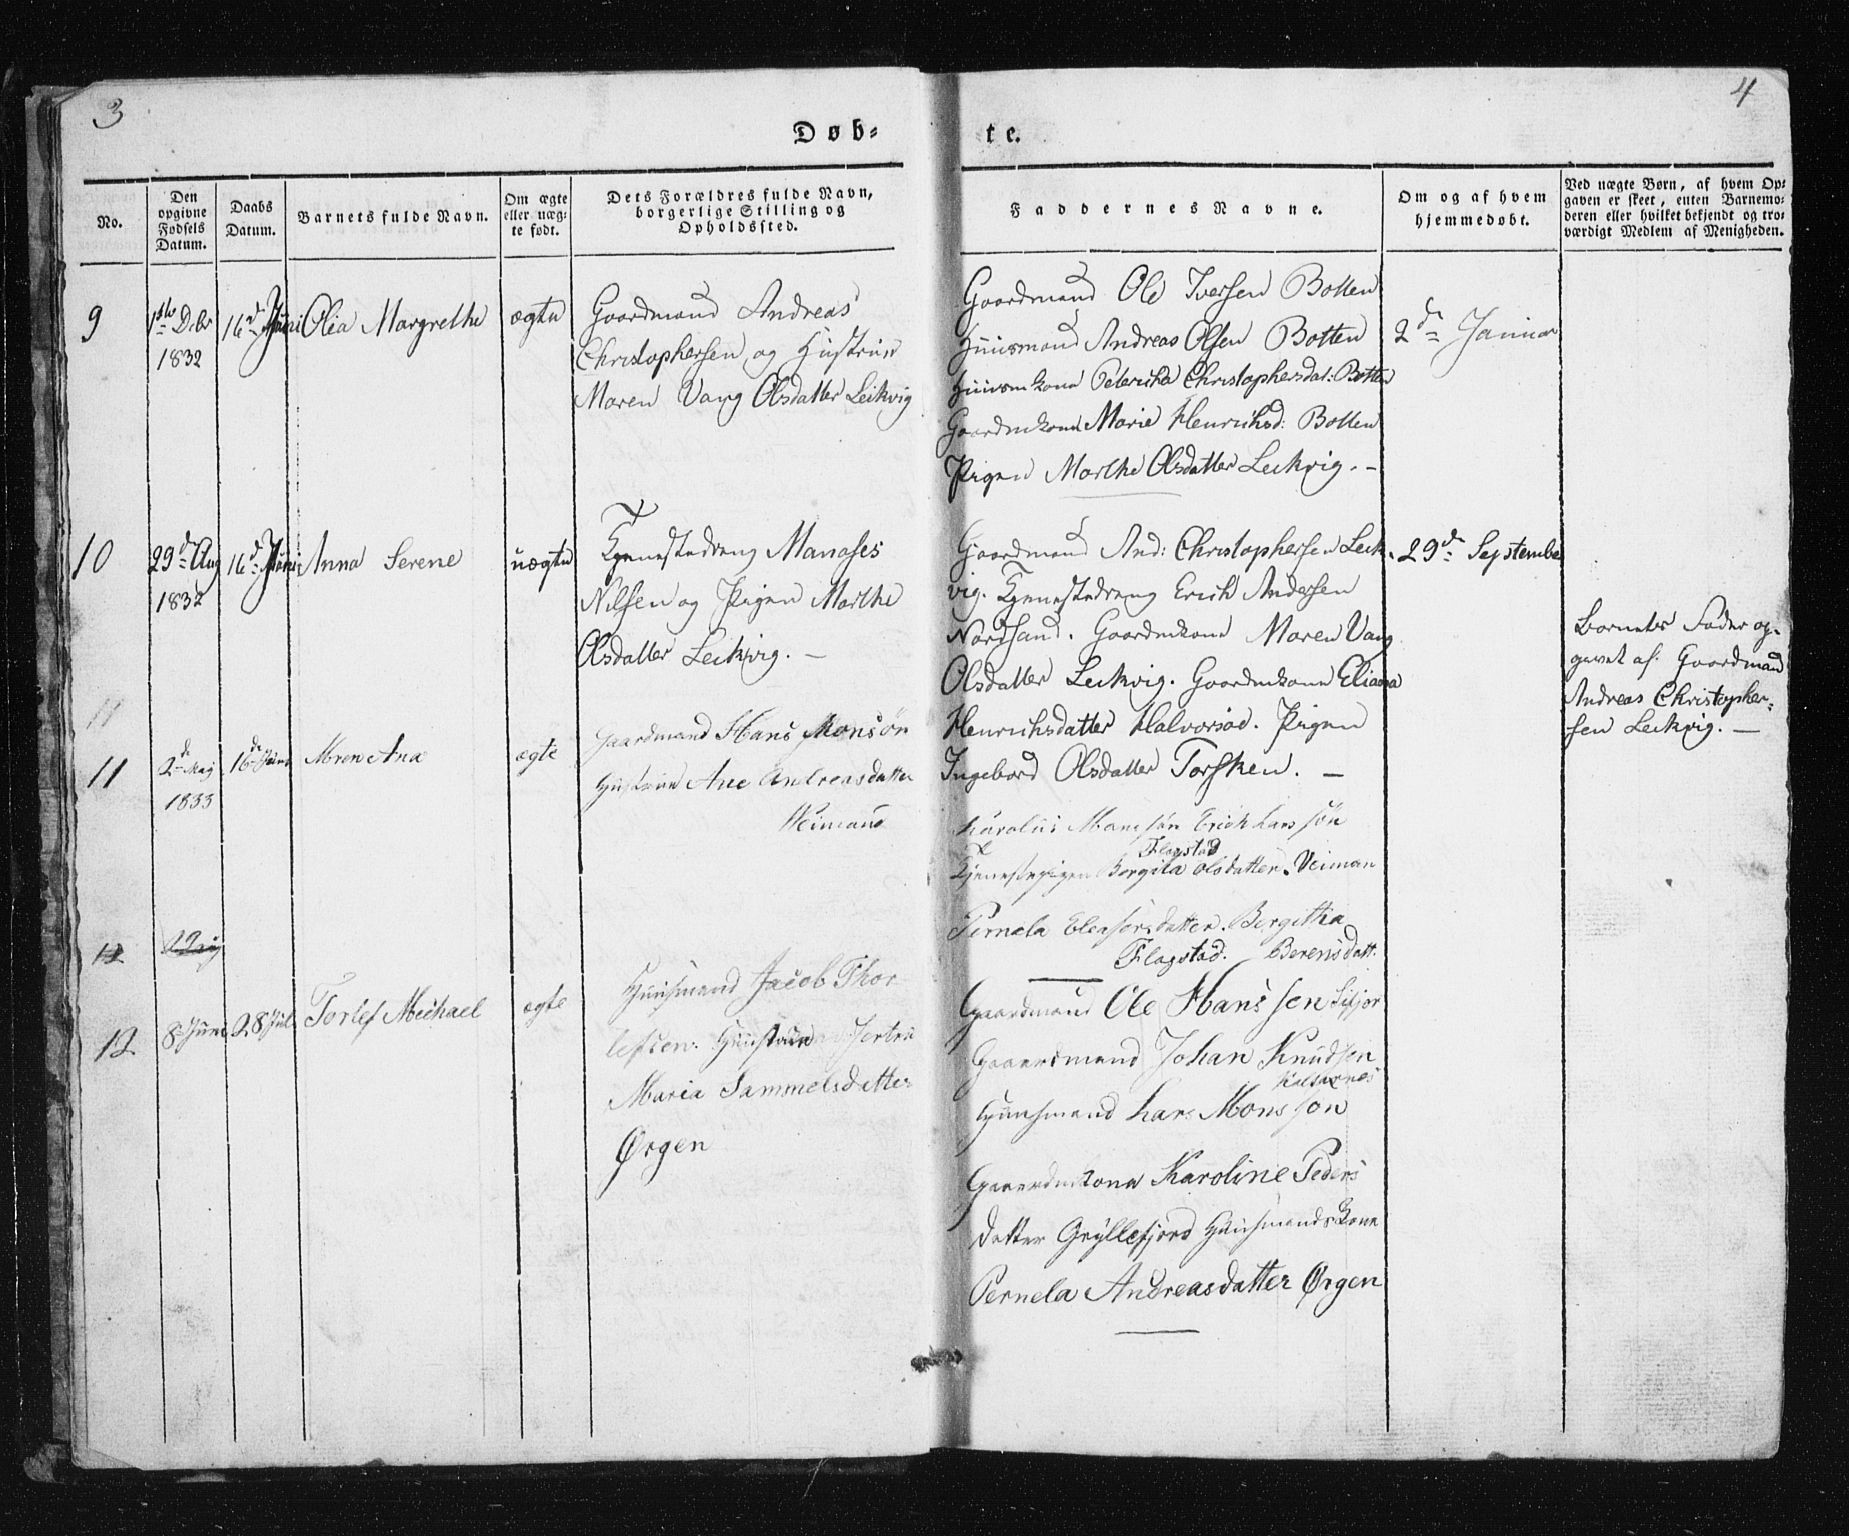 3
4
Døb=
te.
No.
Den opgivne Fødsels Datum.
Daabs Datum.
Barnets fulde Navn.
Om ægte eller uæg= te født.
Dets Forældres fulde Navn, borgerlige Stilling og Opholdssted.
Faddernes Navne.
Om og af hvem hjemmedøbt.
Ved uægte Børn, af hvem Op= gaven er skeet, enten Barnemo= deren eller hvilket bekjendt og tro= værdigt Medlem af Menigheden.
9
1832
16d Juni
Olia Margrethe
ægte
Gaardmand Andreas
Christophersen og Hustrue
Maren Vang Olsdatter Leikvig
Gaardmand Ole Iversen Botten
Huusmand Andreas Olsen Botten
Huusmkone Petericha Christophersdat: Botten
Gaardmkone Marie Henrichsd: Botten
Pigen Marthe Olsdatter Leikvig. -
2d Januar
10
29d Aug
1832
16d Juni
Anna Serene
uægte
Tjenestedreng Manases
Nilsen og Pigen Marthe
Olsdatter Leikvig. -
Gaardmand And: Christophersen Leik
vig. Tjenestedreng Erich Andersen
Nordsand. Gaardmkone Maren Vang
Olsdatter Leikvig. Gaardmkone Eliana
Henrichsdatter Halvorsøe. Pigen
Ingebord Olsdatter Torsken. -
29d September
Barnets Fader op=
givet af. Gaardmand
Andreas Christopher=
sen Leikvig. -
11
11
2de May
1833
16de Juni
Mren Ana
ægte
Gaardmand Hans Monsøn
Hustrue Ane Andreasdatter
Weimand
Karolus Monssøn Erich Larssøn
Flagstad
Tjenestepigen Borgita Olsdatter. Veiman
Pernela Elensersdatter. Bergitha
Flagstad. Berensdatt.
12
12
8 Juni
28 Jul
Torlef Michael
ægte
Huusmand Jacob Thor
lefsen. Hustrue
Maria Sammelsdatter
Ørgen
Gaardmand Ole Hanssen Sifjor
Gaaerdmand Johan Knudsen
Kalsarnes
Huusmand Lars Monsson
Gaaerdmkone Karoline Peders
datter Gryllefjord Huusmandskone
Pernela Andreasdatter Ørgen